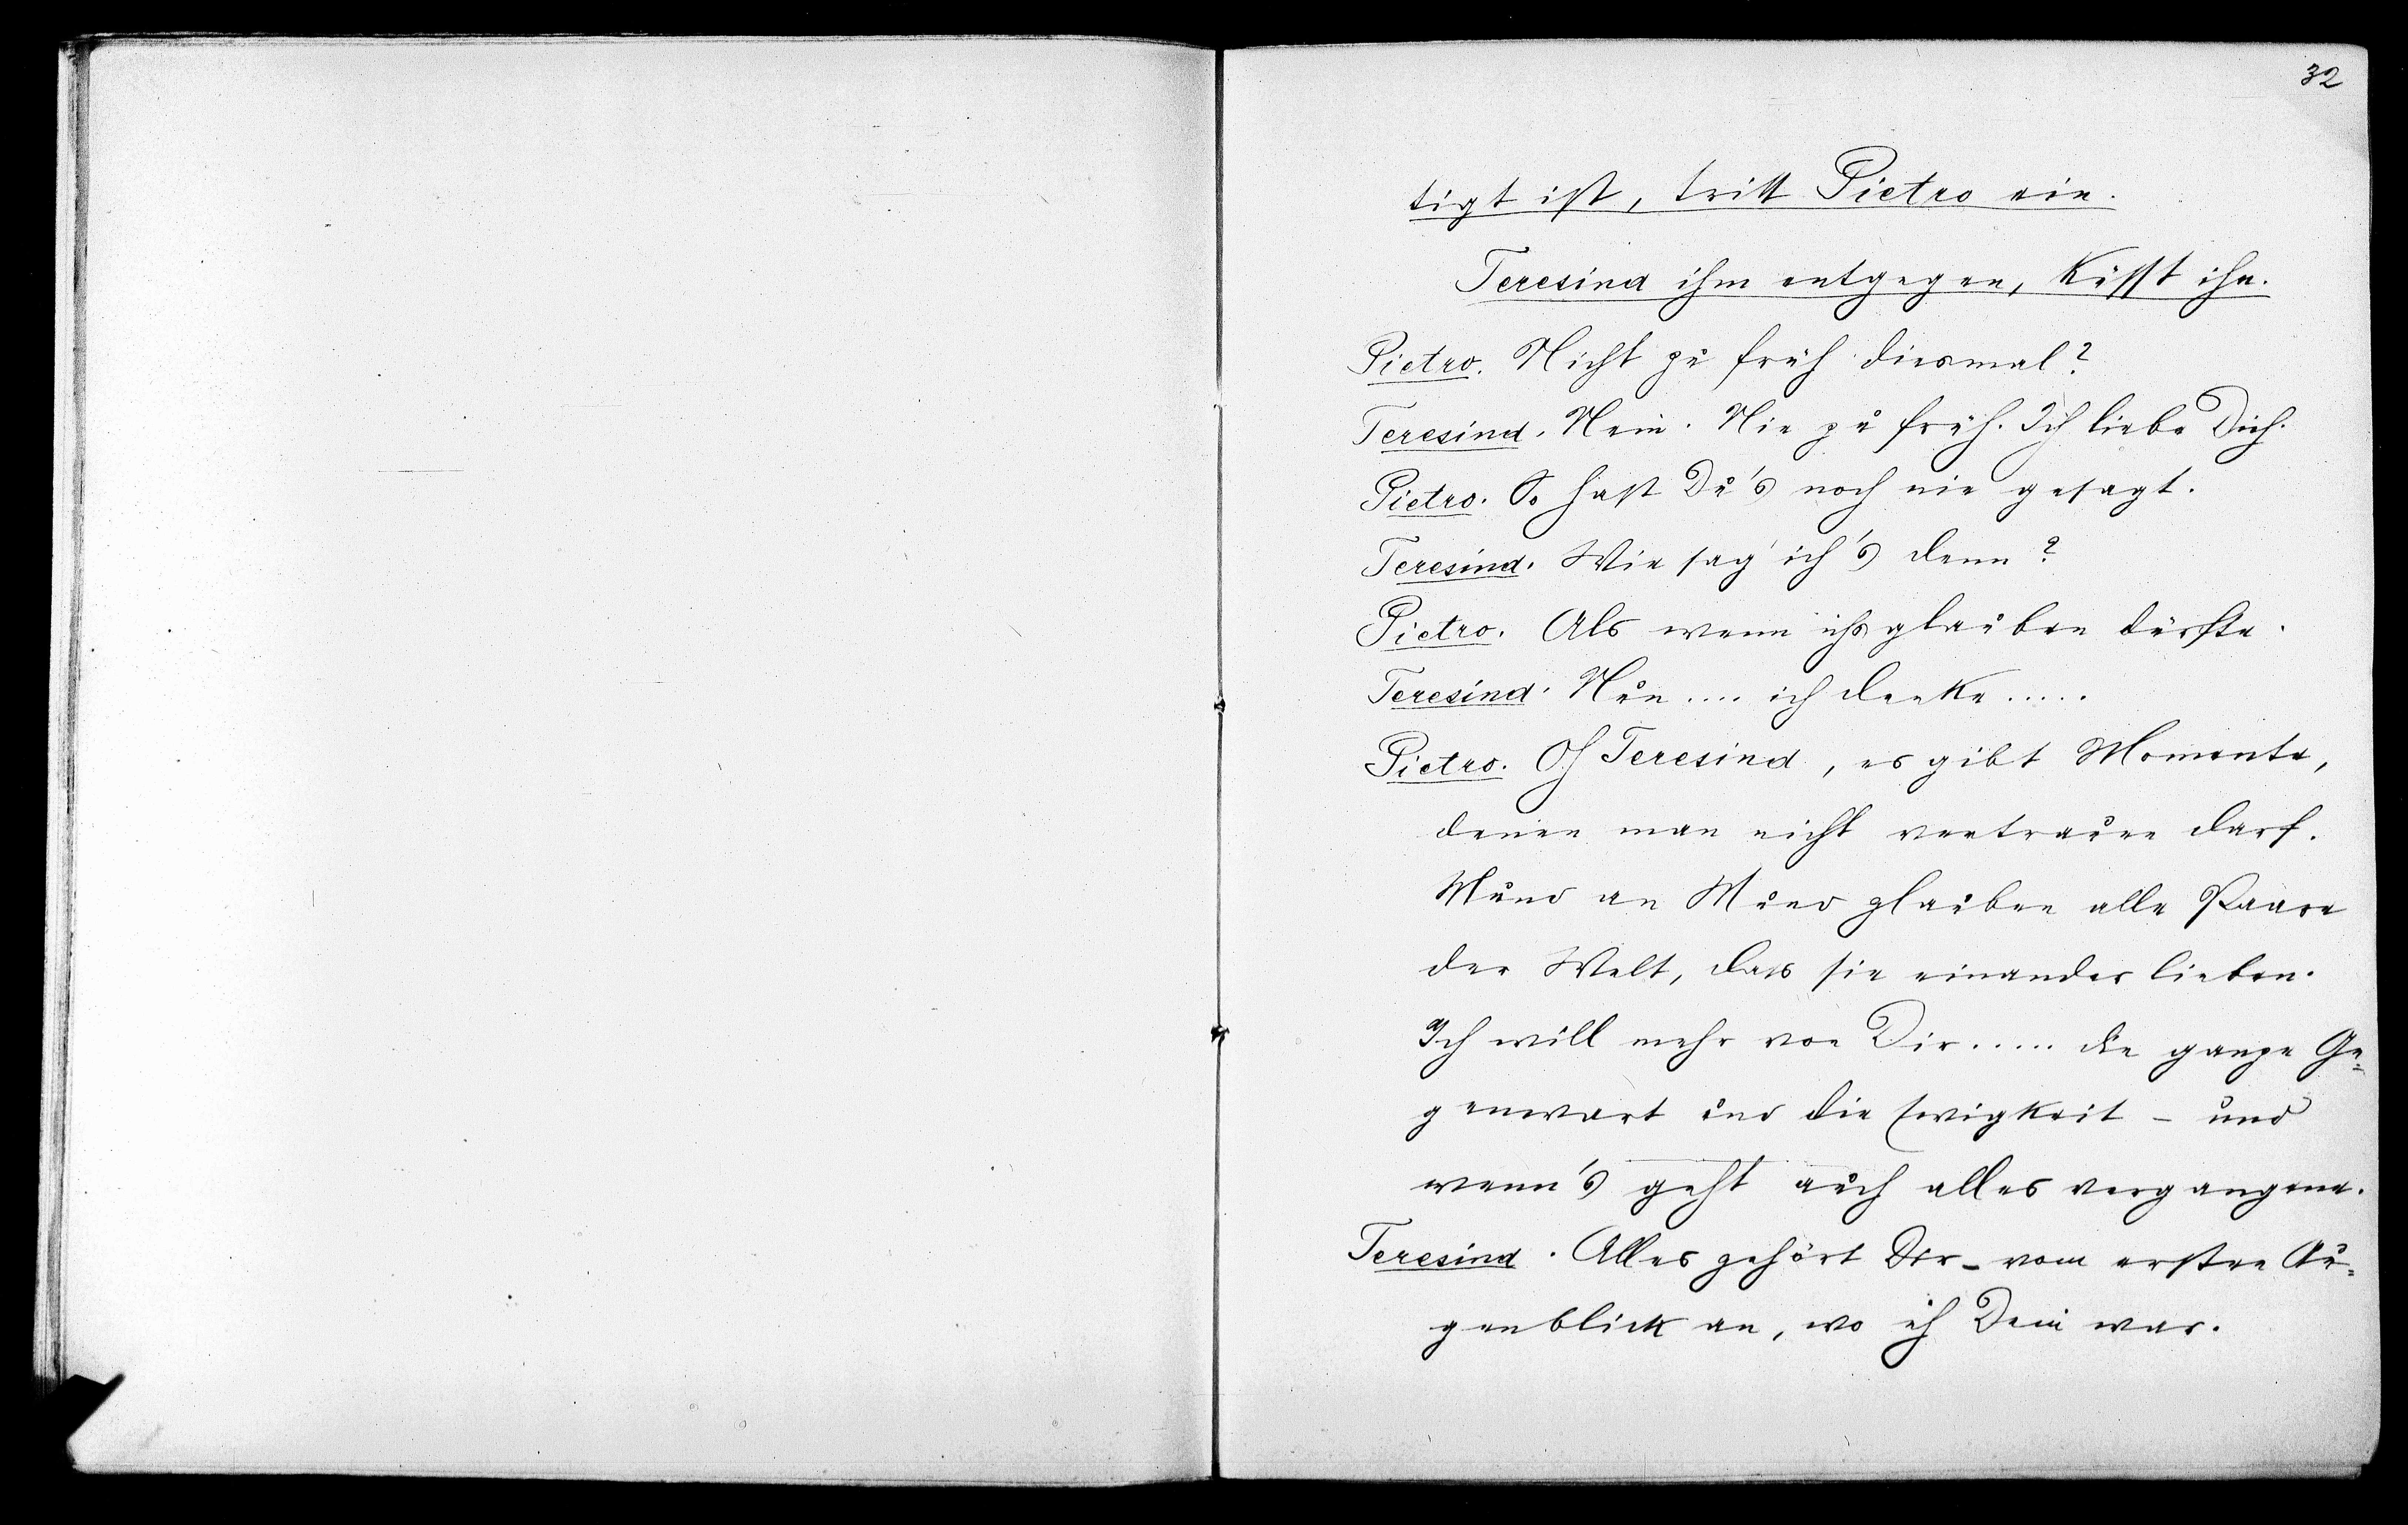 32
tigt ist, tritt Pietro ein.
Teresina ihm entgegen, küsst ihn.
Pietro. Nicht zu früh diesmal?
Teresina. Nein. Nie zu früh. Ich liebe Dich.
Pietro. So hast Du's noch nie gesagt.
Teresina. Wie sag' ich's denn?
Pietro. Als wenn ichs glauben dürfte.
Teresina. Nun .... ich denke .....
Pietro. Oh Teresina, es gibt Momente,
denen man nicht vertrauen darf.
Mund an Mund glauben alle Paare
der Welt, dass sie einander lieben.
Ich will mehr von Dir ..... die ganze Ge=
genwart und die Ewigkeit – und
wenn's geht auch alles vergangene.
Teresina. Alles gehört Dir – vom ersten Au=
genblick an, wo ich Dein war.